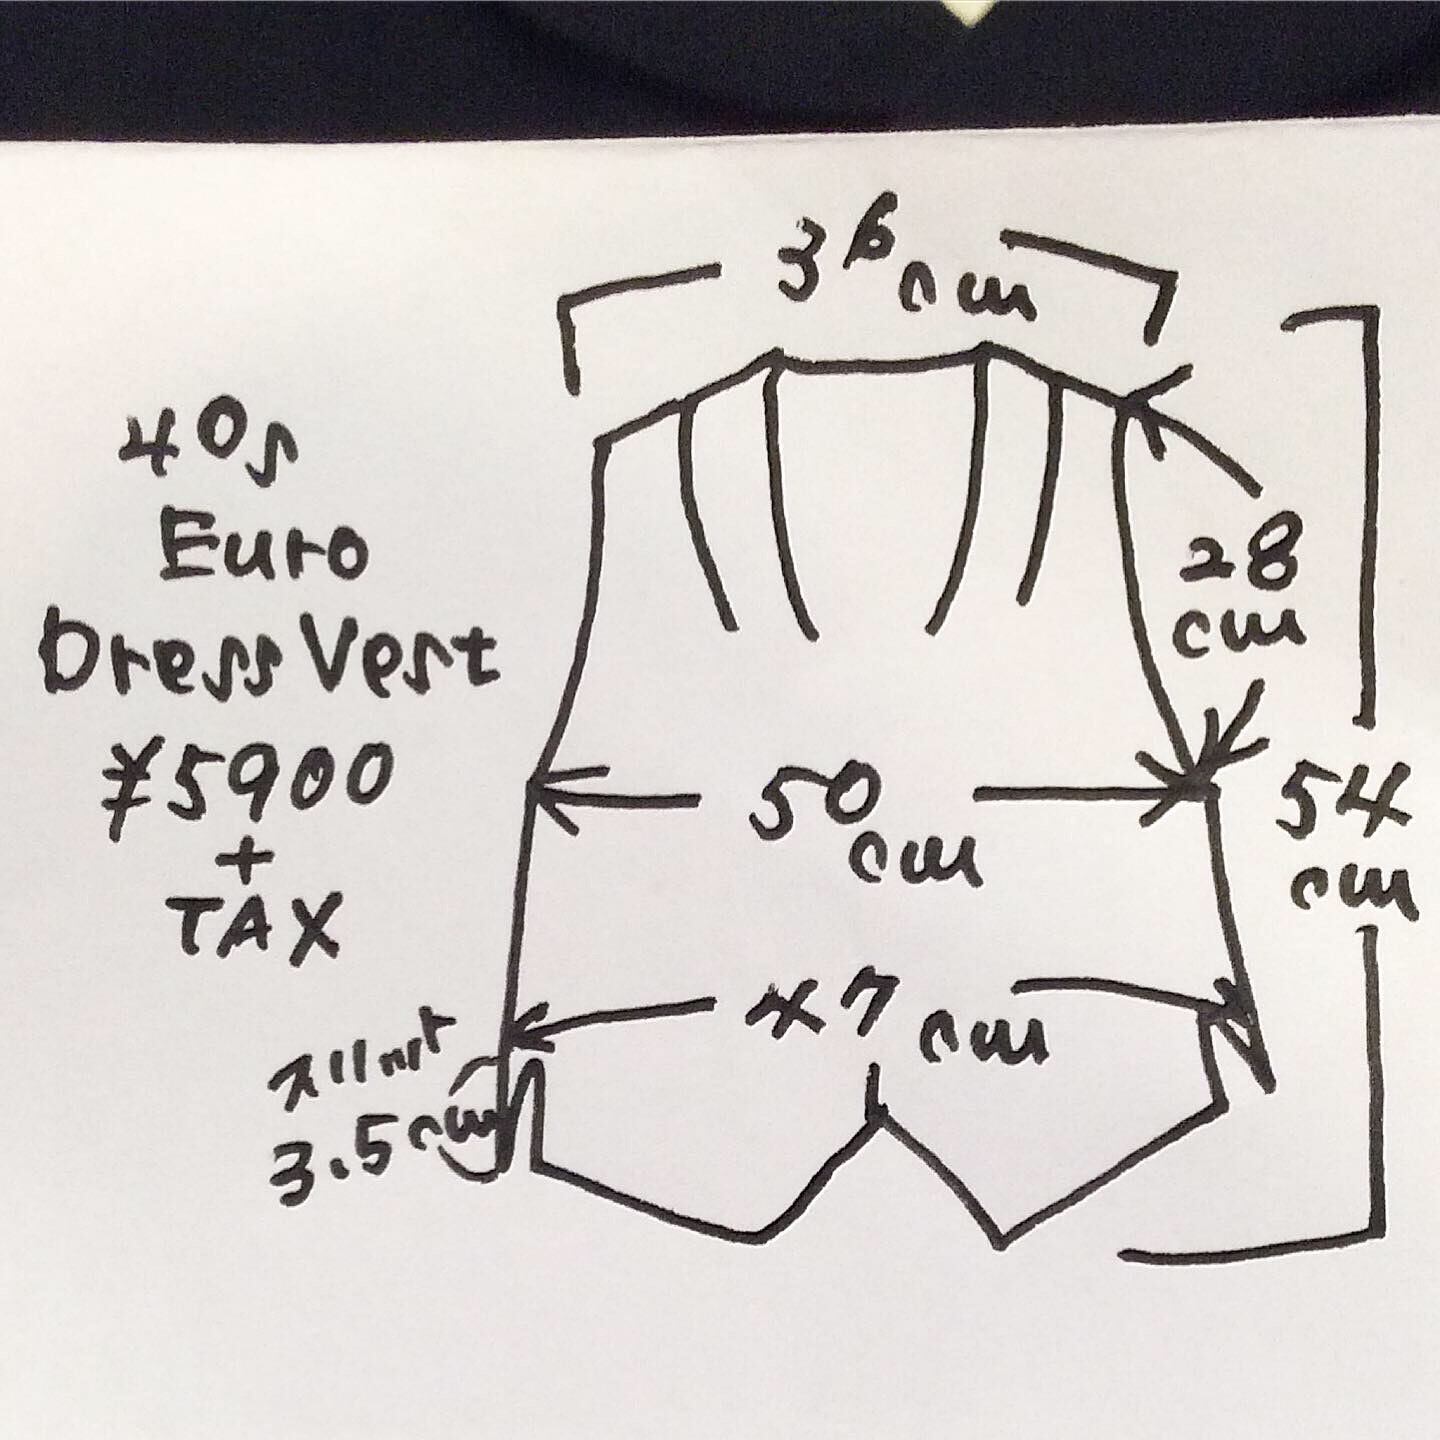 36cm
40s
Euro
Dress Vest
¥5900
+
TAX
28
cm
50
cm
54
cm
47 cm
スリット
3.5cm